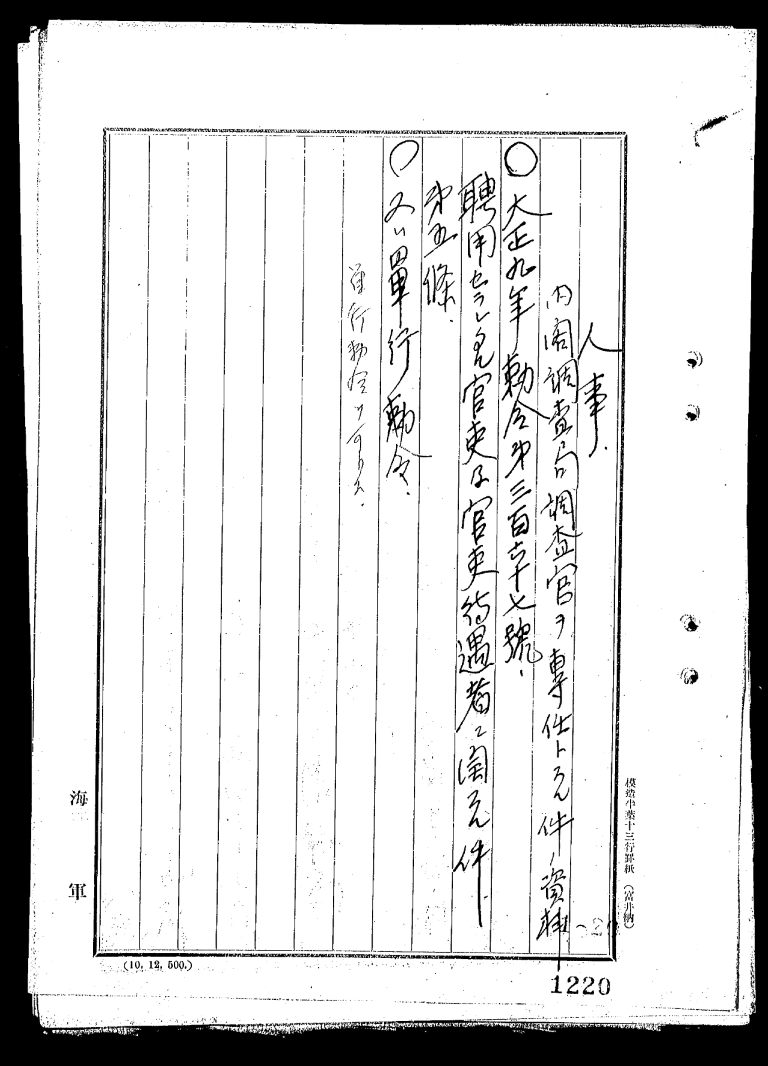 人事.
内閣調査局調査官ヲ専任トスル件ノ資料
○大正九年勅令第三百六十七號.
聘用セラレタル官吏及官吏待遇者ニ関スル件.
第五條.
○又ハ単行勅令.
単行勅令
海軍
模造半葉十三行罫紙 (富井納)
(10. 12. 500.)
1220